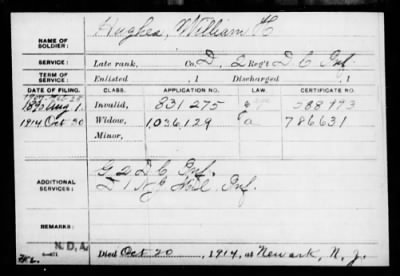 NAME OF SOLDIER: Hughes, William H
SERVICE: Late rank, Co. D, 2 Reg't D C Inf.
TERM OF SERVICE: Enlisted , 1 Discharged , 1
DATE OF FILING. CLASS. APPLICATION NO. LAW. CERTIFICATE NO.
Aug 1 Invalid, 831 275 993
1914 Oct 30 Widow, 1,036,129 a 786,631
Minor,
ADDITIONAL SERVICES: G 2 D C Inf.
D 1 N.J. Inf.
REMARKS:
N. D. A.
Died Oct 20, 1914, at Newark, N. J.